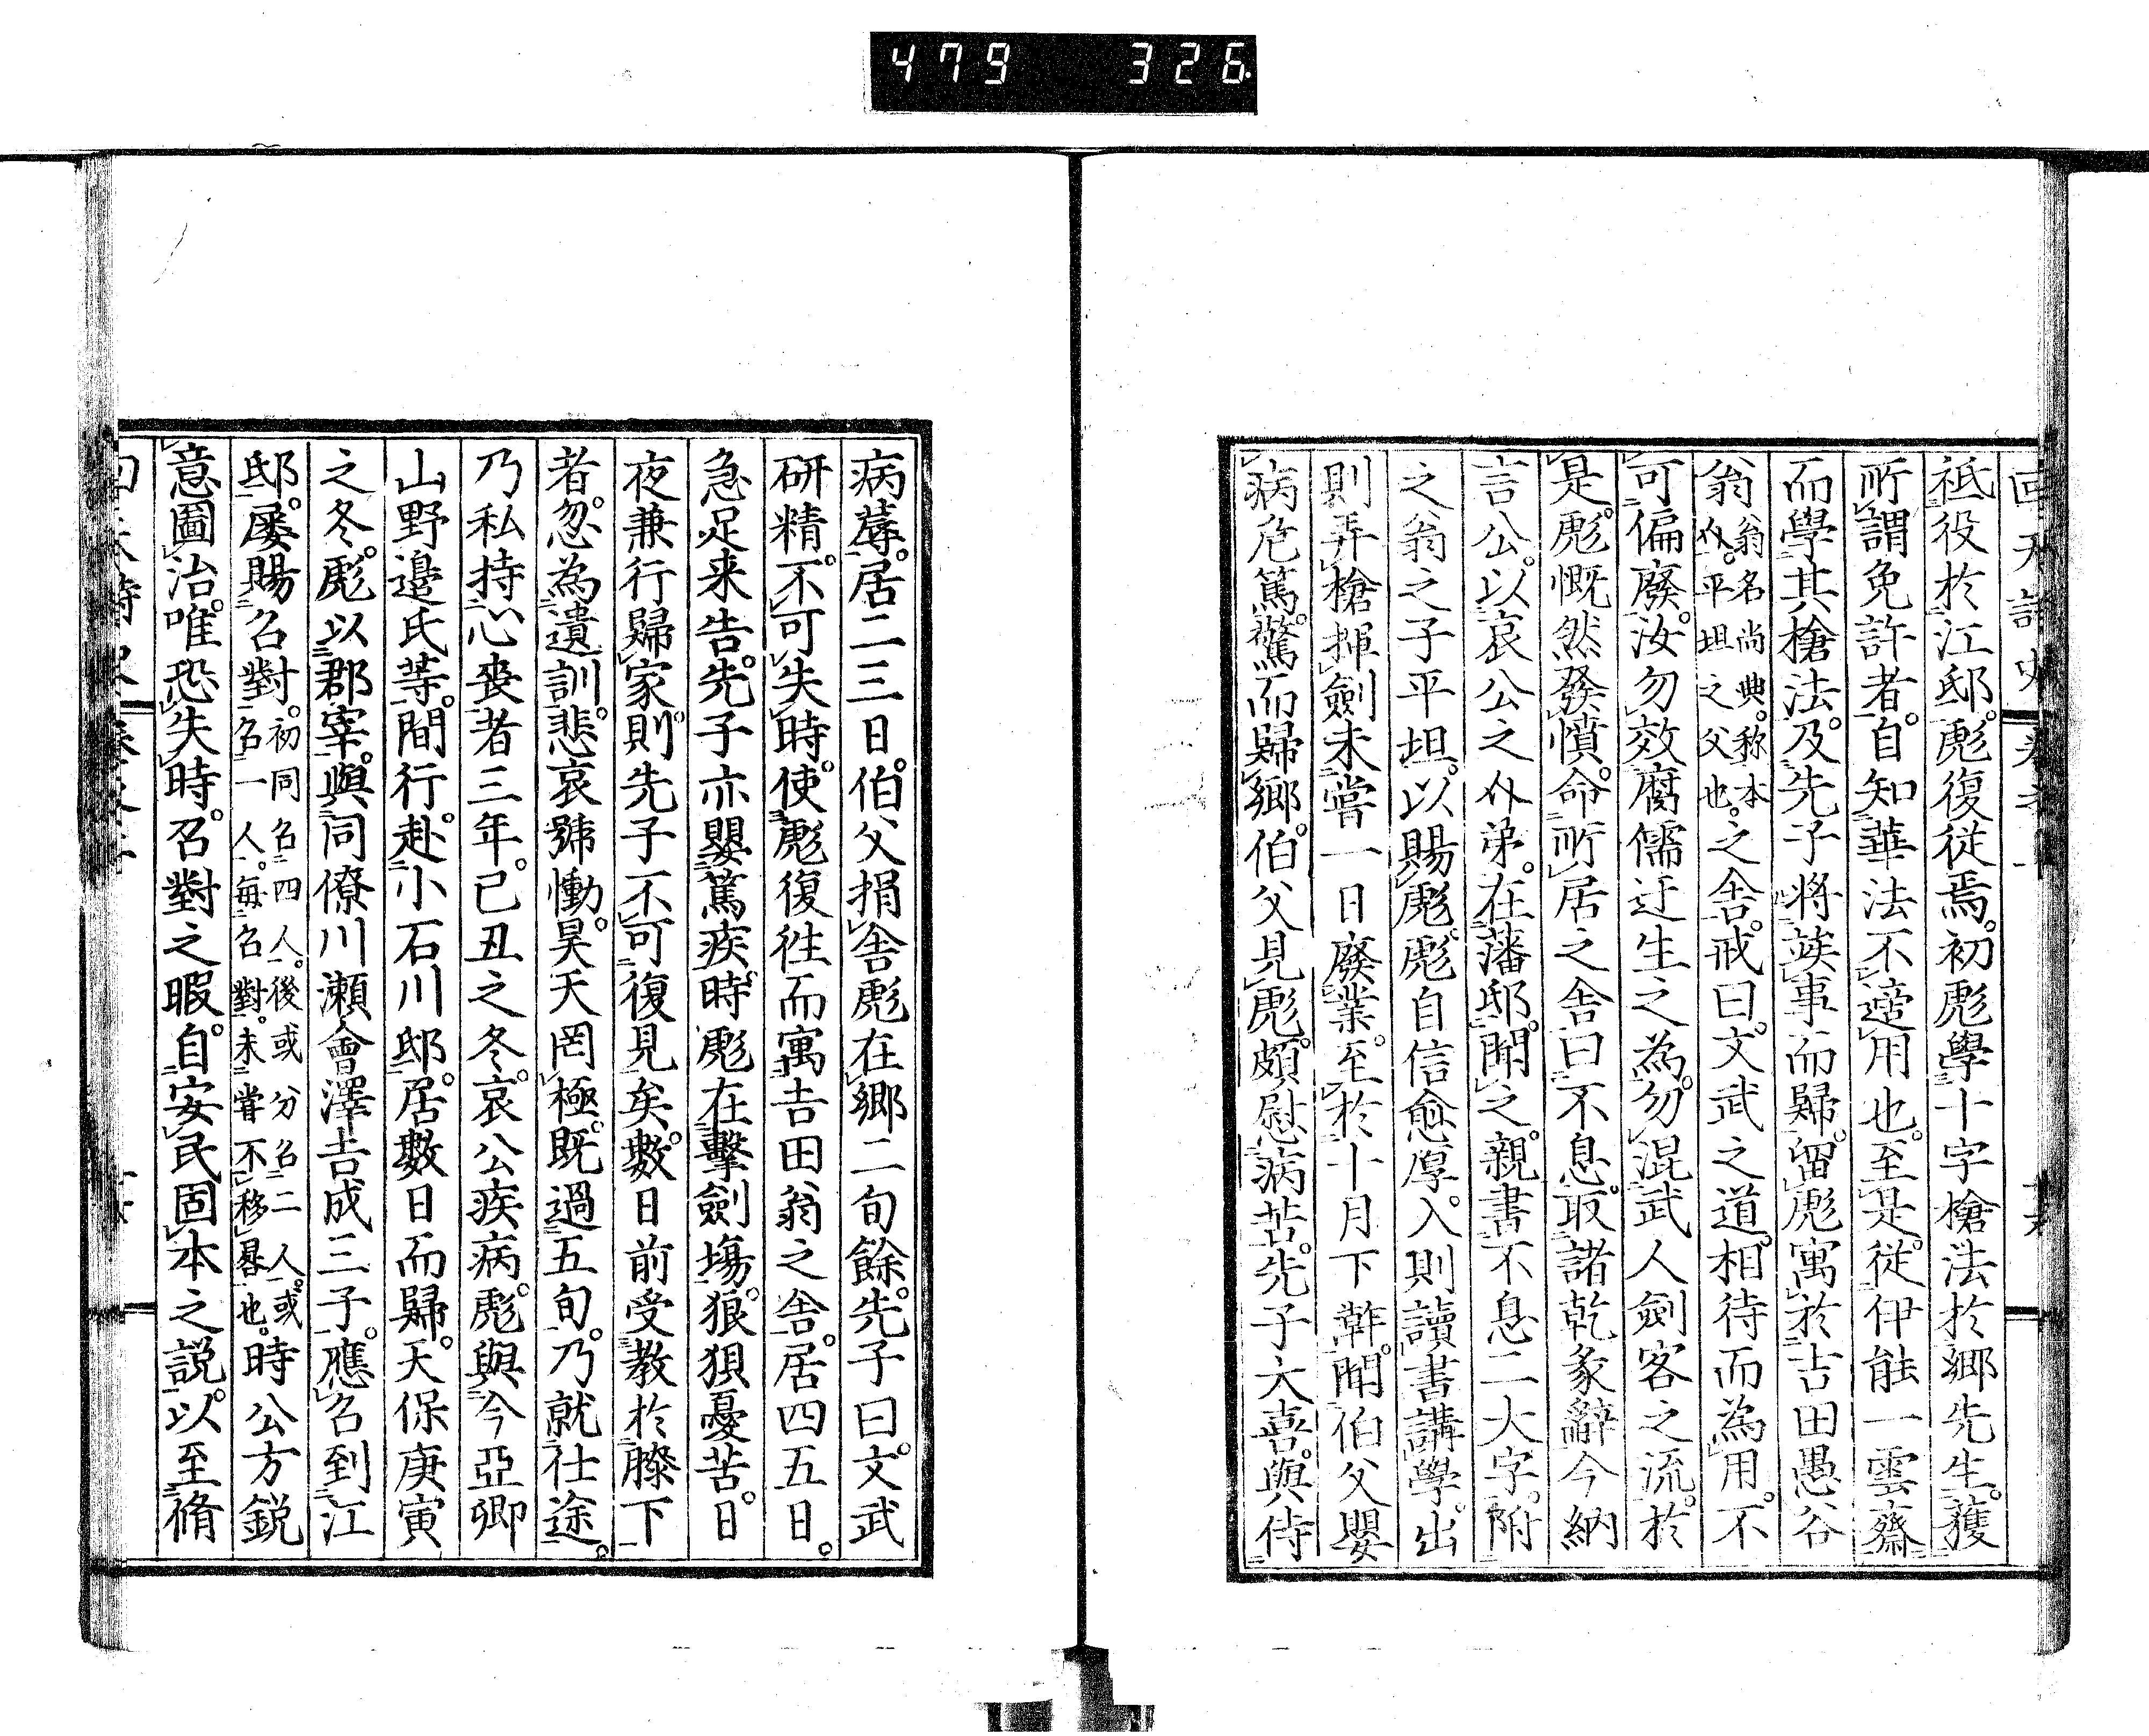 479 326
祗役於江邸。彪復従焉。初彪學十字槍法於郷先生。獲
所謂免許者。自知華法不適用也。至是。従伊能一雲齋
而學其槍法。及先子将竣事而歸。留彪寓於吉田愚谷
翁翁名尚典。称本
㕕。平坦之父也。之舎。戒曰。文武之道。相待而為用。不
可偏廢。汝勿效腐儒迂生之為。勿混武人劍客之流。於
是。彪慨然發憤。命所居之舎曰不息。取諸乾象辭今納
言公。以哀公之㕕弟。在藩邸。聞之。親書不息二大字。附
之翁之子平坦。以賜彪。彪自信愈厚。入則讀書講學。出
則弄槍揮劍未嘗一日廢業。至於十月下澣。聞伯父嬰
病危篤。驚而歸郷。伯父見彪。頗慰病苦。先子大喜。與侍
病蓐。居二三日。伯父捐舎彪在郷二旬餘。先子曰。文武
研精。不可失時。使彪復徃而寓吉田翁之舎。居四五日。
急足来告。先子亦嬰篤疾。時彪在擊劍塲。狼狽憂苦。日
夜兼行歸家。則先子不可復見矣。數日前受教於膝下
者。忽為遺訓。悲哀號慟。昊天罔極。既過五旬。乃就仕途。
乃私持心喪者三年。己丑之冬。哀公疾病。彪與今亞卿
山野邉氏等。間行。赴小石川邸。居數日而歸。天保庚寅
之冬。彪以郡宰。與同僚川瀬會澤吉成三子。應召到江
邸。屡賜召對。初同召四人。後或分召二人。或
召一人。毎召對。未嘗不移晷也。時公方鋭
意圖治。唯恐失時。召對之暇。自安民固本之説。以至脩